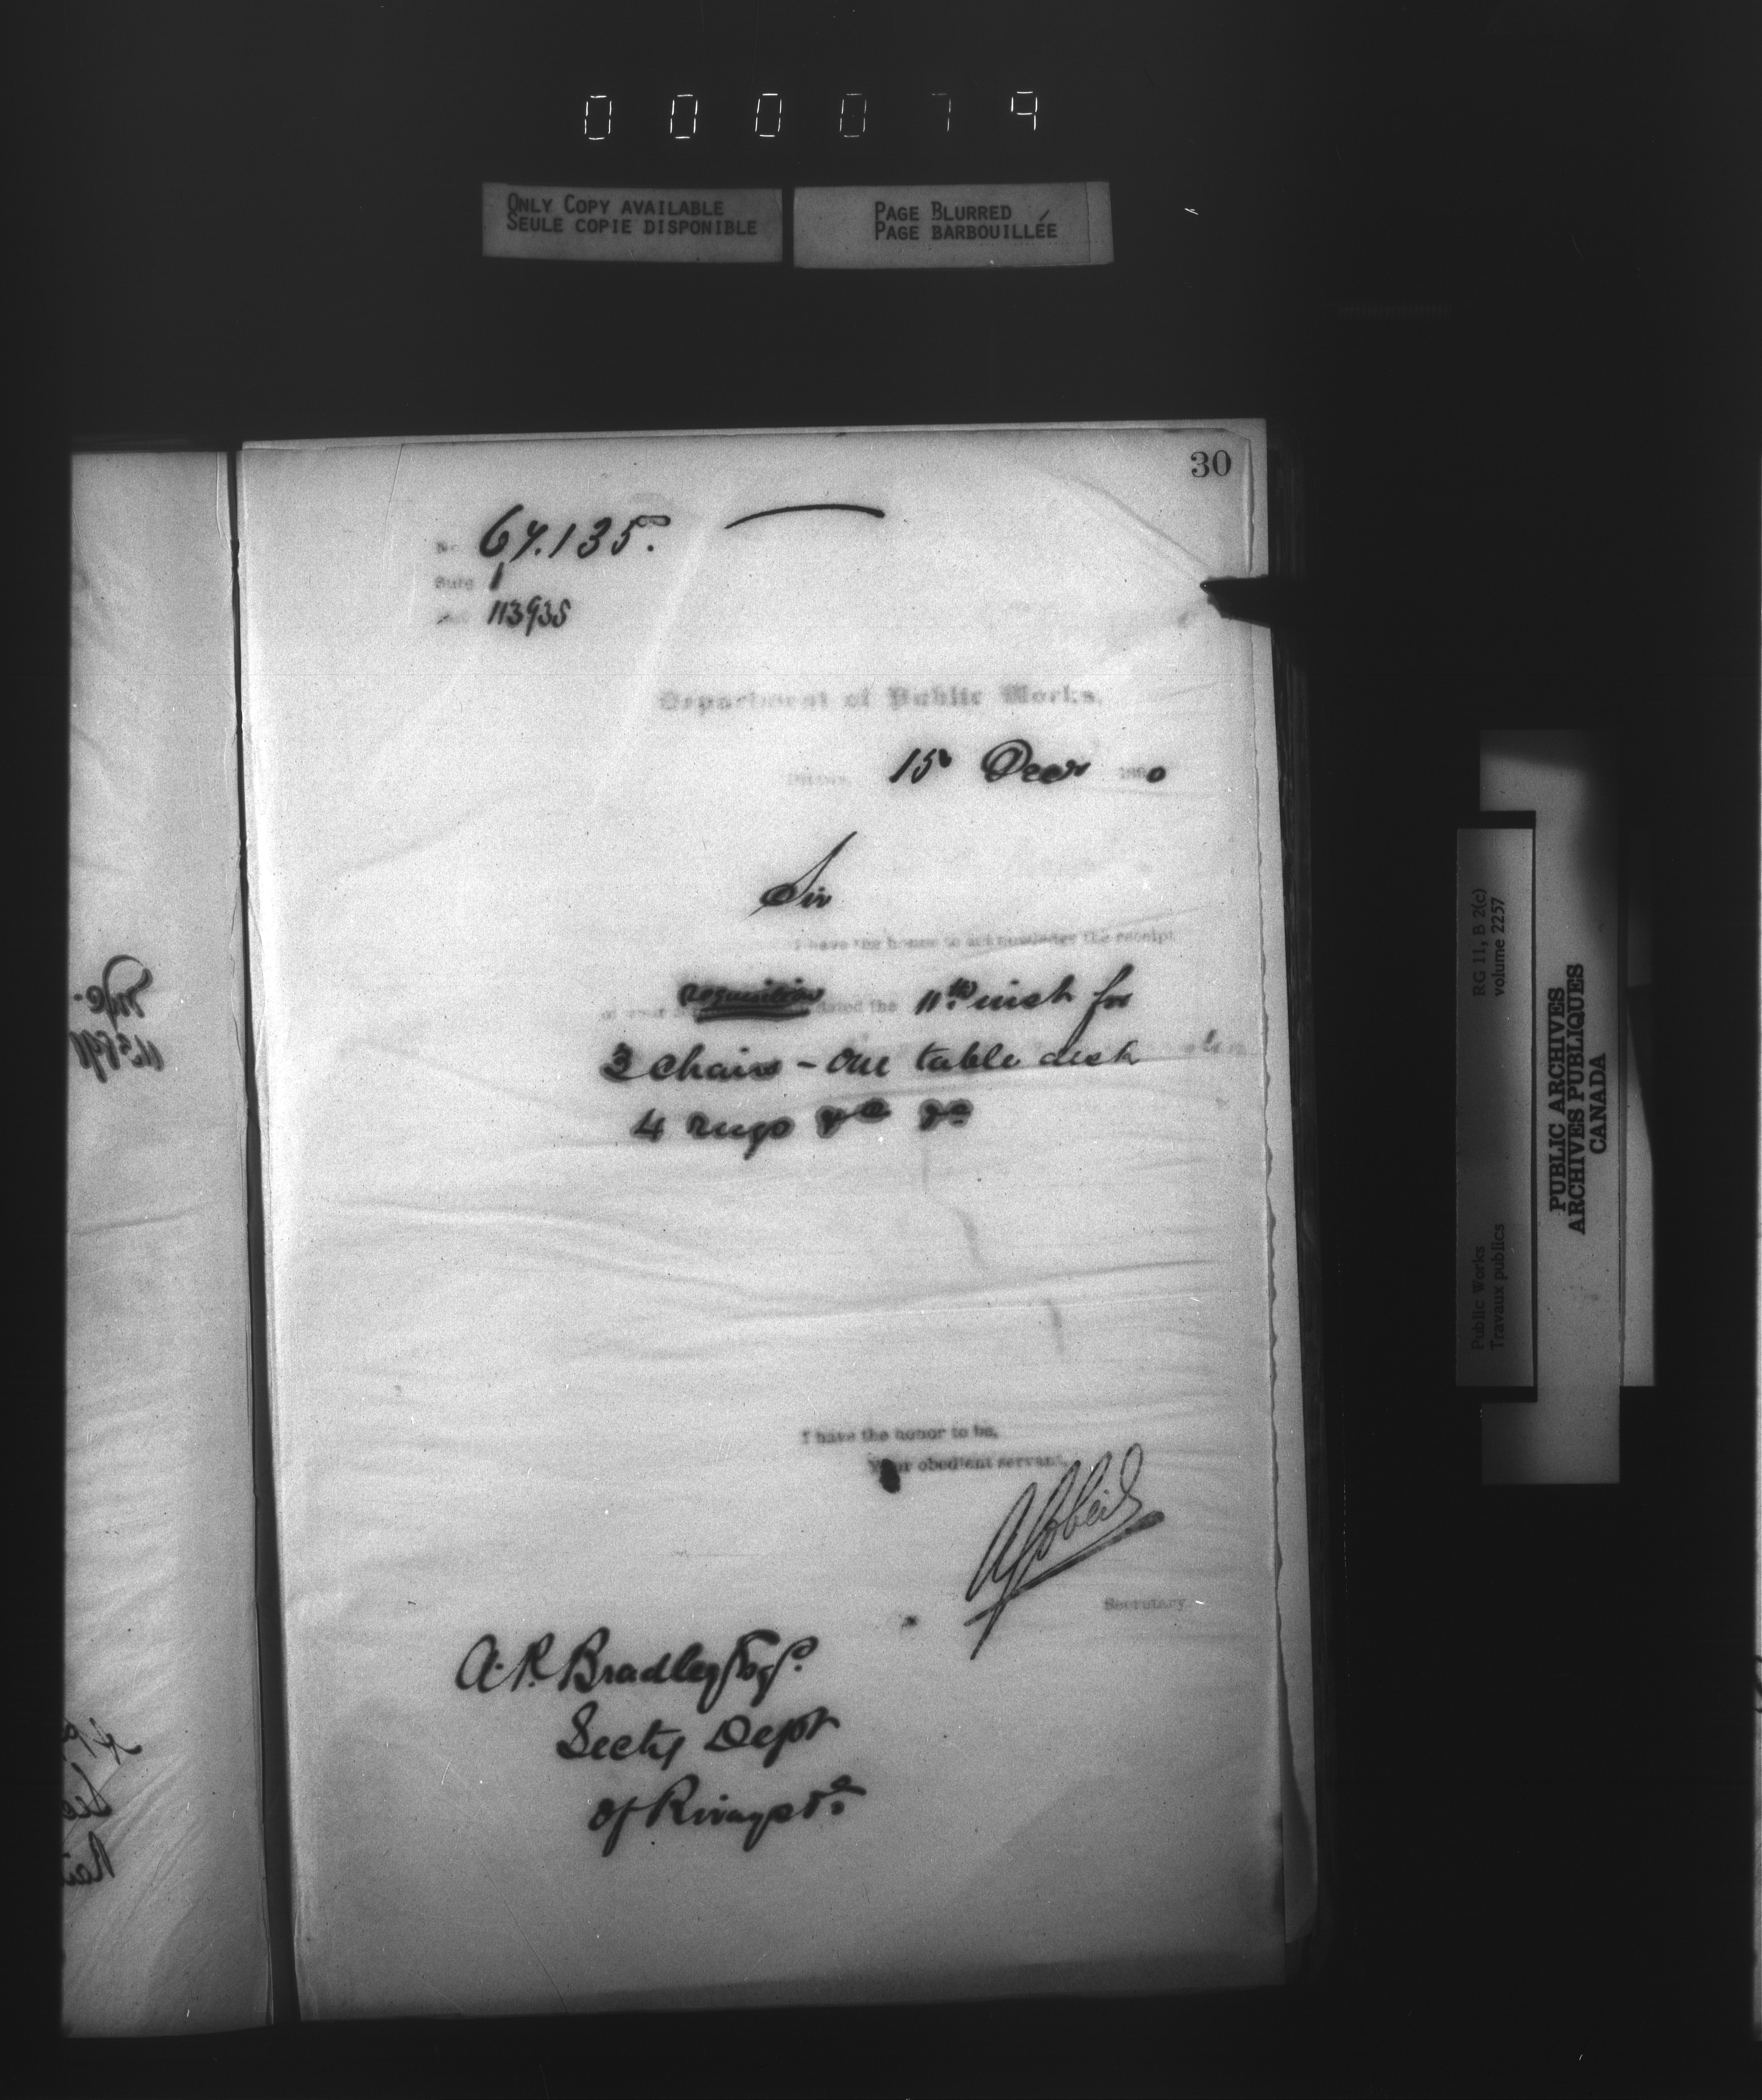 0 0 0 0 7 9
ONLY COPY AVAILABLE
SEULE COPIE DISPONIBLE
PAGE BLURRED
PAGE BARBOUILLÉE
30
No. 67.135.
Subj. 1
Ref. 113935
Department of Public Works,
Ottawa, 15 Decr 1890
Sir
I have the honor to acknowledge the receipt
of your requisition dated the 11th inst for
3 chairs - One table desk
4 rugs &c &c
I have the honor to be,
Your obedient servant,
Secretary.
A. P. Bradley Esqr.
Secty Dept
of Rways &c
RG 11, B 2(c)
volume 2257
Public Works
Travaux publics
PUBLIC ARCHIVES
ARCHIVES PUBLIQUES
CANADA